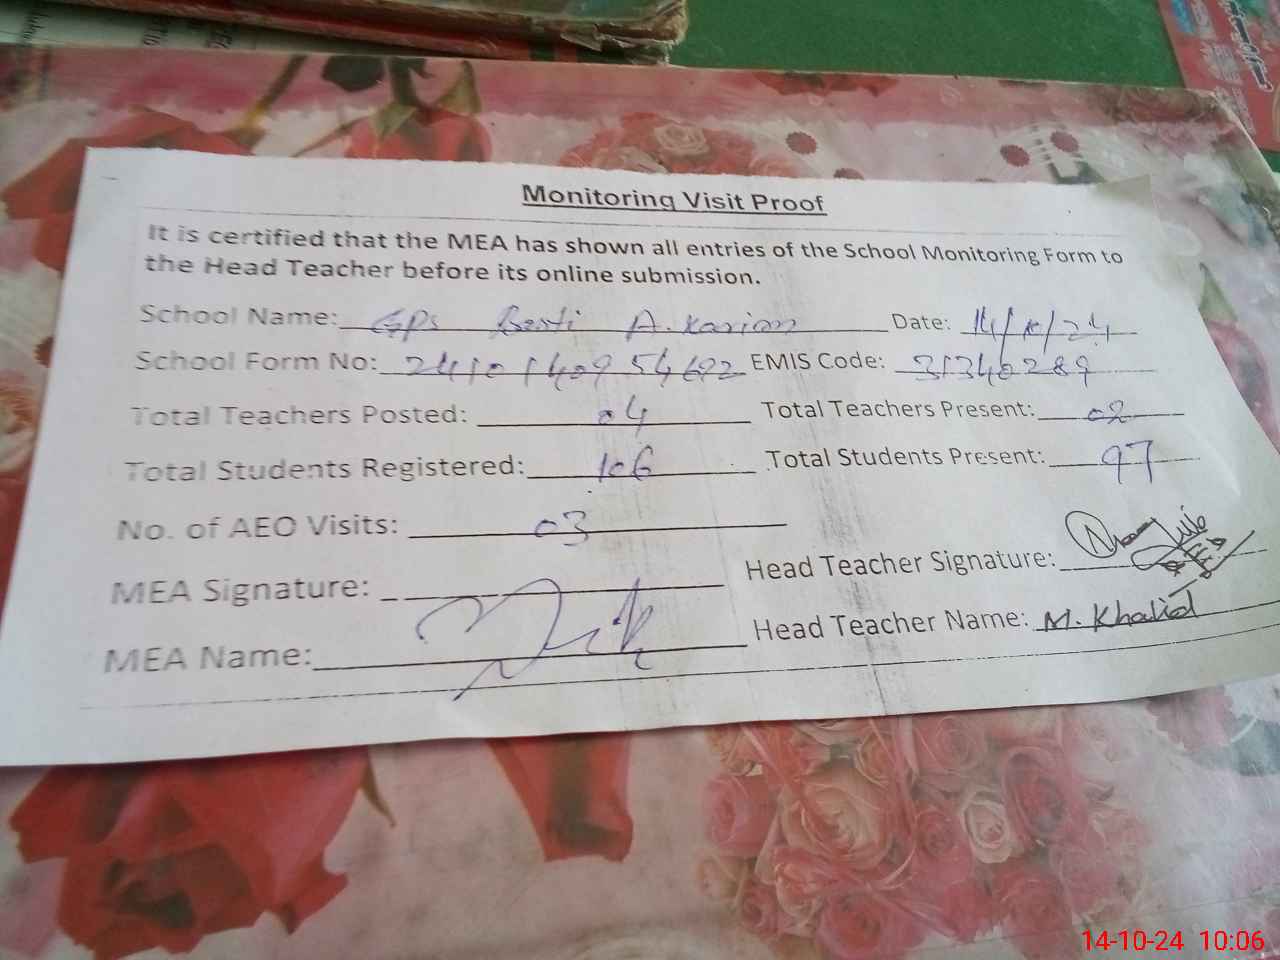 Monitoring Visit Proof
It is certified that the MEA has shown all entries of the School Monitoring Form to
the Head Teacher before its online submission.
School Name: GPS Basti A. Karim Date: 14/10/24
School Form No: 2410140954692 EMIS Code: 31340289
Total Teachers Posted: 04 Total Teachers Present: 02
Total Students Registered: 106 Total Students Present: 97
No. of AEO Visits: 03
MEA Signature: Head Teacher Signature:
MEA Name: Head Teacher Name: M. Khalid
14-10-24 10:06